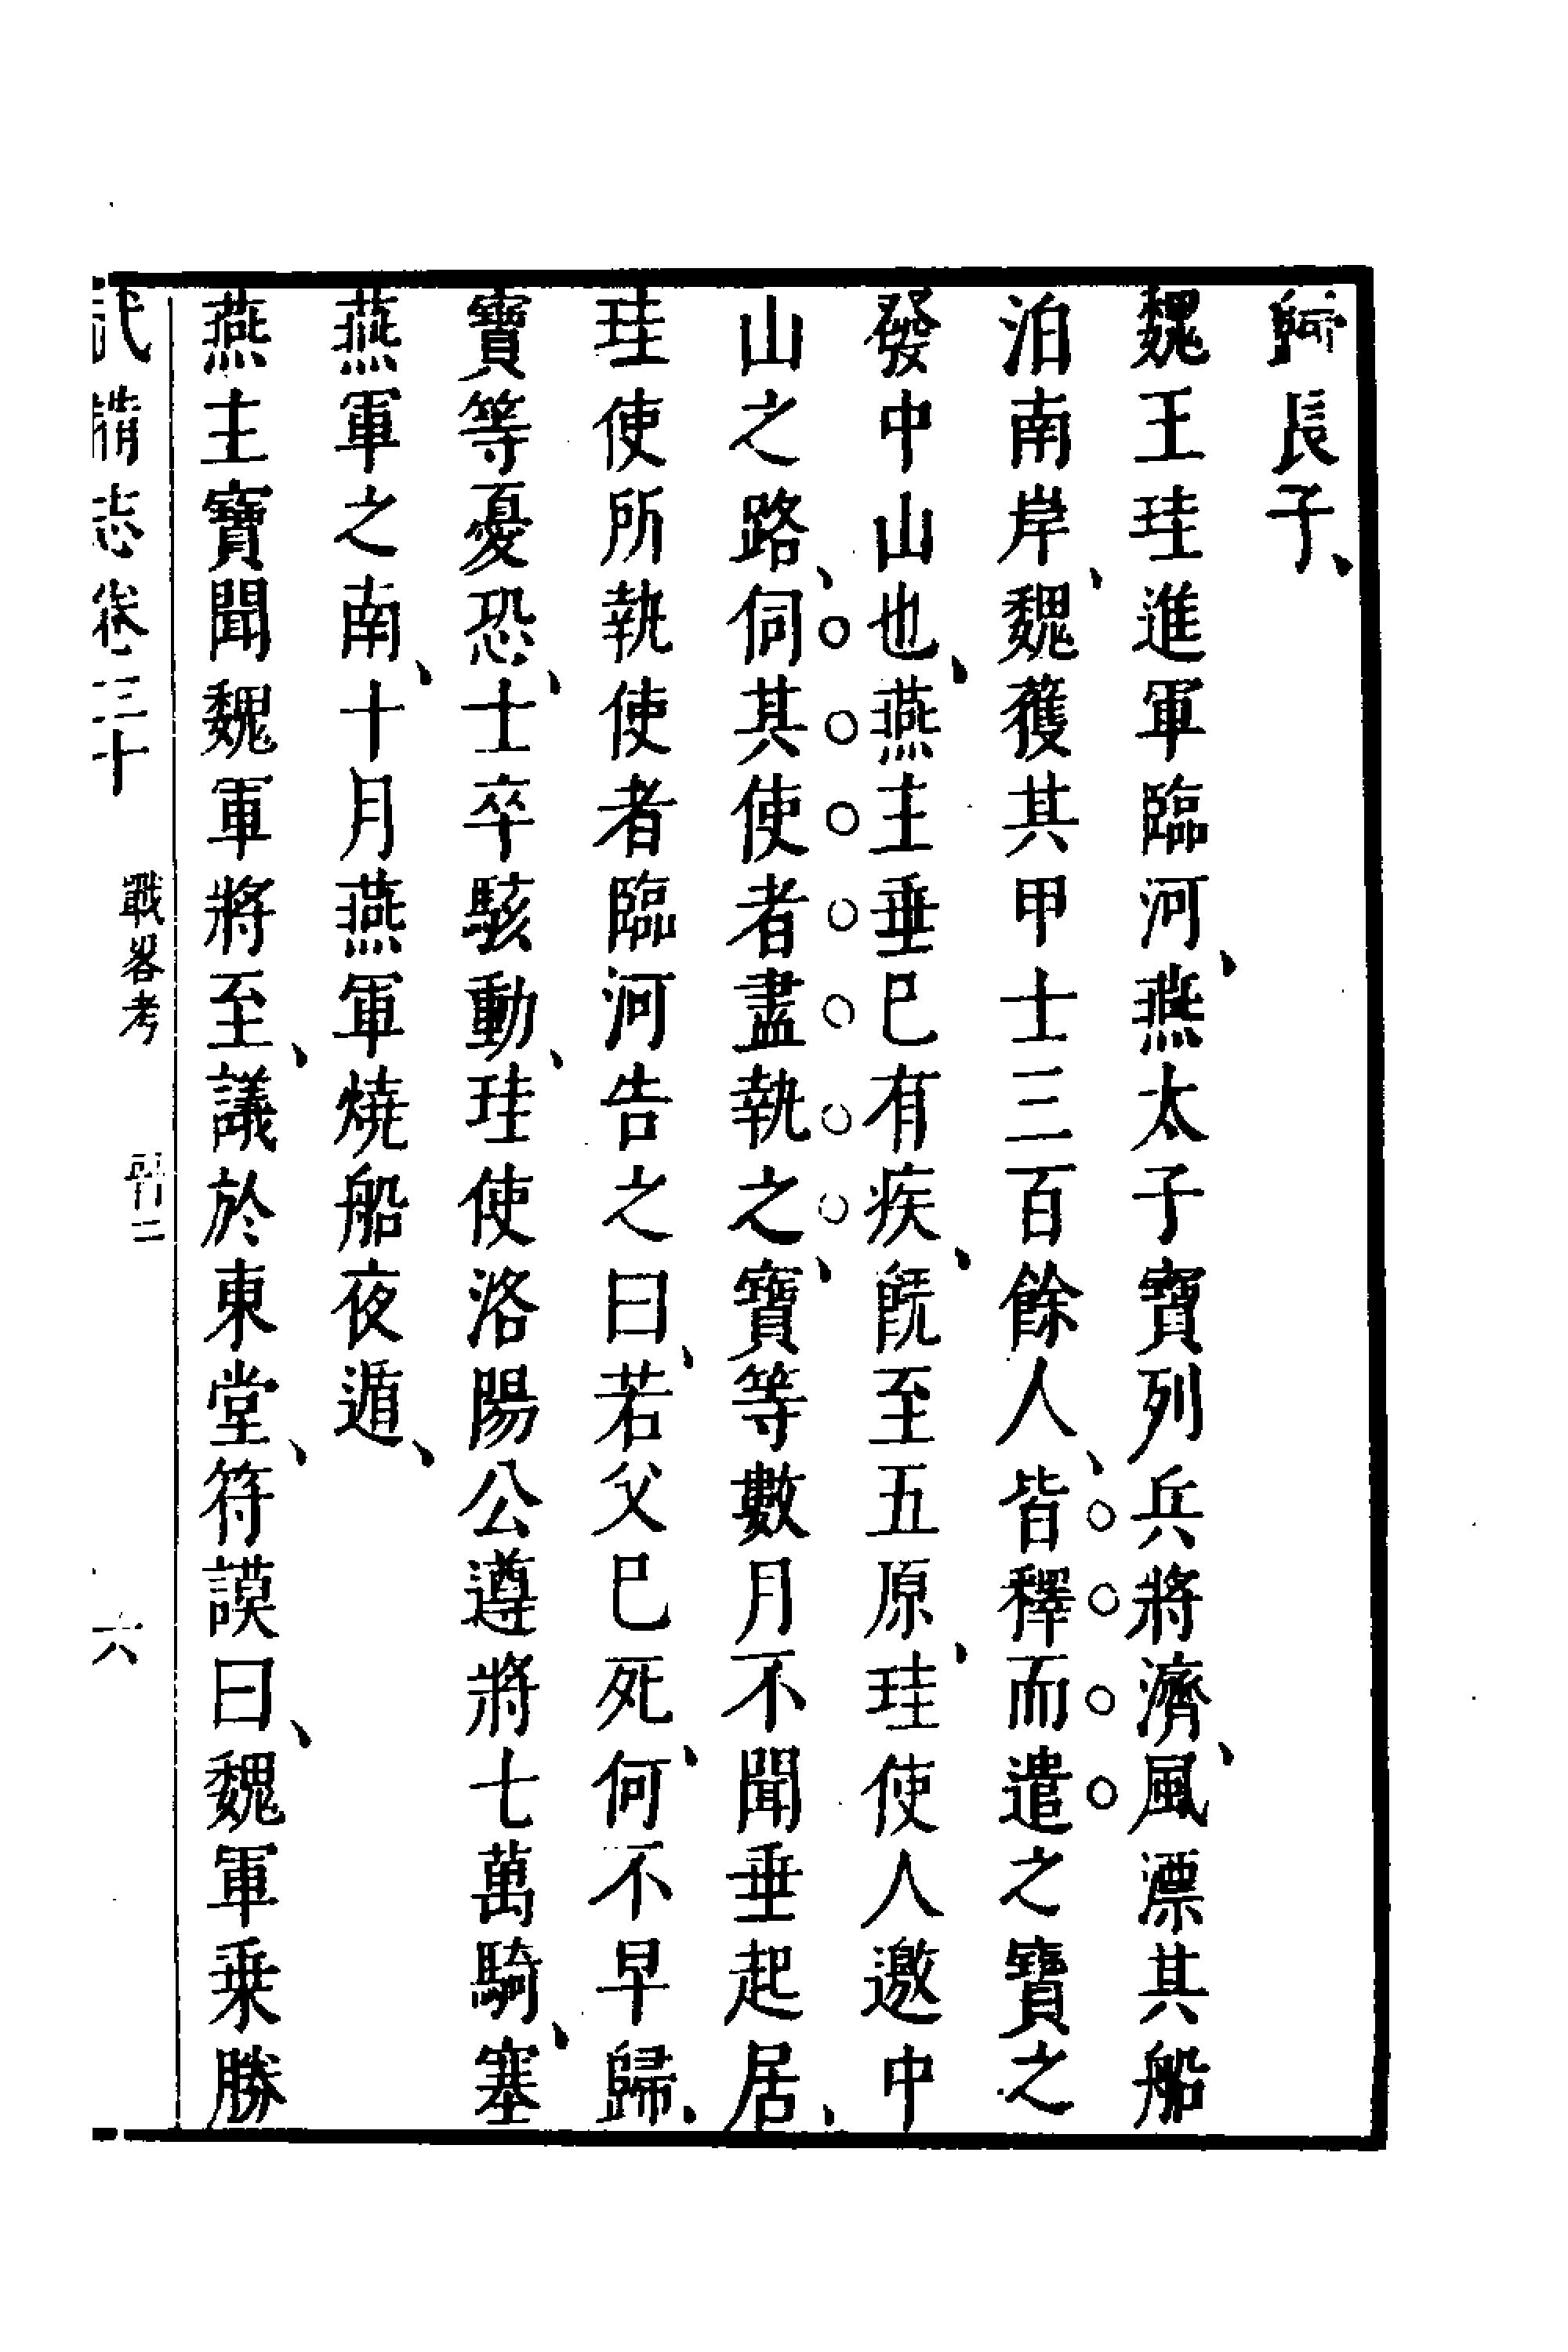 歸長子、
魏王珪進軍臨河、燕太子寶列兵將濟、風漂其船
泊南岸、魏獲其甲士三百餘人、皆釋而遣之寶之
發中山也、燕主垂已有疾、旣至五原、珪使人邀中
山之路、伺其使者盡執之、寶等數月不聞垂起居、
珪使所執使者臨河告之曰、若父已死、何不早歸、
寶等憂恐、士卒駭動、珪使洛陽公遵將七萬騎、塞
燕軍之南、十月燕軍燒船夜遁、
燕主寶聞魏軍將至、議於東堂、符謨曰、魏軍乗勝
武備志卷三十 戰畧考 晉二 六